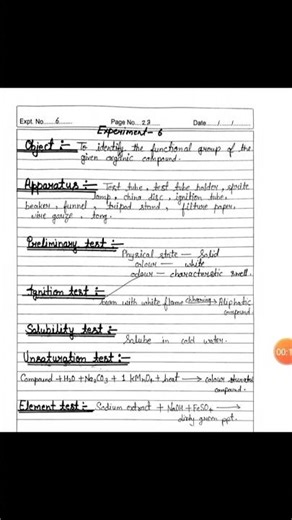 Expt. No. 6 Page No. 23 Date / /
Experiment-6
Object :- To identify the functional group of the
given organic compound.
Apparatus :- Test tube, test tube holder, sprite
lamp, china disc, ignition tube,
beaker, funnel, tripod stand, filture paper,
wire gauze, tong.
Preliminary test :-
Physical state — Solid
colour — white
odour — characteristic smell.
Ignition test :-
burn with white flame Aliphatic
compound.
Solubility test :-
Soluble in cold water.
Unsaturation test :-
Compound + H2O + Na2CO3 + 1 KMnO4 + heat → colour
compound.
Element test :- Sodium extract + NaOH + FeSO4 →
dirty green ppt.
00:1